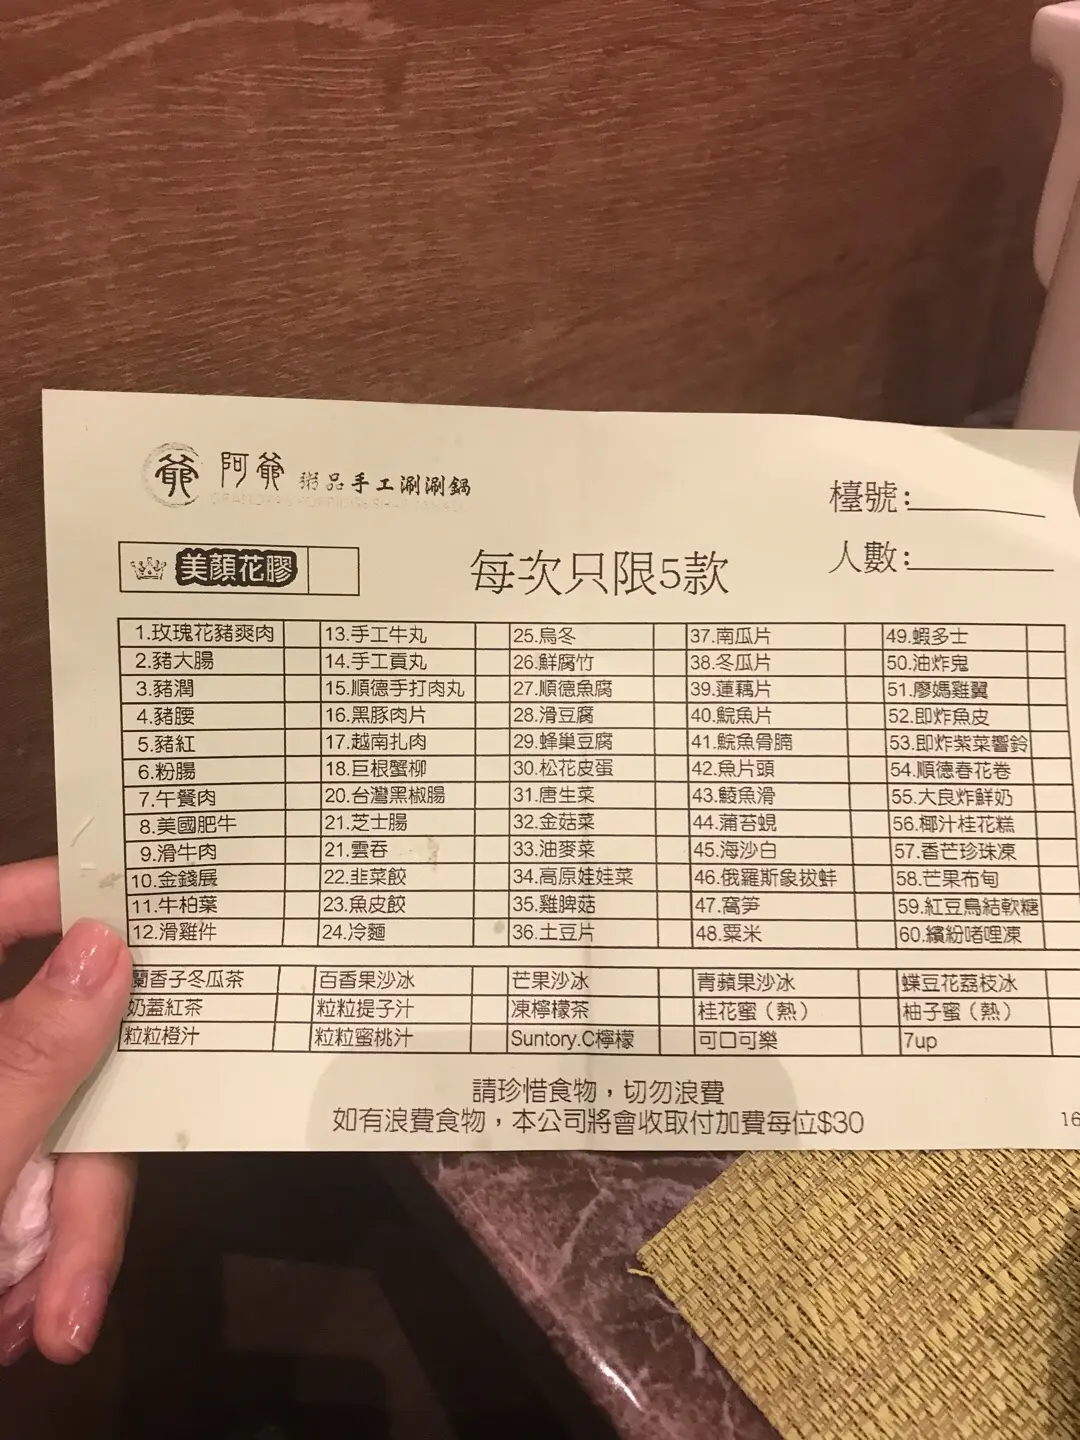 爺 阿爺 粥品手工涮涮鍋
檯號:
人數:
美顏花膠
每次只限5款
1.玫瑰花豬爽肉 13.手工牛丸 25.烏冬 37.南瓜片 49.蝦多士
2.豬大腸 14.手工貢丸 26.鮮腐竹 38.冬瓜片 50.油炸鬼
3.豬潤 15.順德手打肉丸 27.順德魚腐 39.蓮藕片 51.廖媽雞翼
4.豬腰 16.黑豚肉片 28.滑豆腐 40.鯇魚片 52.即炸魚皮
5.豬紅 17.越南扎肉 29.蜂巢豆腐 41.鯇魚骨腩 53.即炸紫菜響鈴
6.粉腸 18.巨根蟹柳 30.松花皮蛋 42.魚片頭 54.順德春花卷
7.午餐肉 20.台灣黑椒腸 31.唐生菜 43.鯪魚滑 55.大良炸鮮奶
8.美國肥牛 21.芝士腸 32.金菇菜 44.蒲苔蜆 56.椰汁桂花糕
9.滑牛肉 21.雲吞 33.油麥菜 45.海沙白 57.香芒珍珠凍
10.金錢展 22.韭菜餃 34.高原娃娃菜 46.俄羅斯象拔蚌 58.芒果布甸
11.牛柏葉 23.魚皮餃 35.雞脾菇 47.窩笋 59.紅豆鳥結軟糖
12.滑雞件 24.冷麵 36.土豆片 48.粟米 60.繽紛啫哩凍
蘭香子冬瓜茶 百香果沙冰 芒果沙冰 青蘋果沙冰 蝶豆花荔枝冰
奶蓋紅茶 粒粒提子汁 凍檸檬茶 桂花蜜（熱） 柚子蜜（熱）
粒粒橙汁 粒粒蜜桃汁 Suntory.C檸檬 可口可樂 7up
請珍惜食物，切勿浪費
如有浪費食物，本公司將會收取付加費每位$30
16